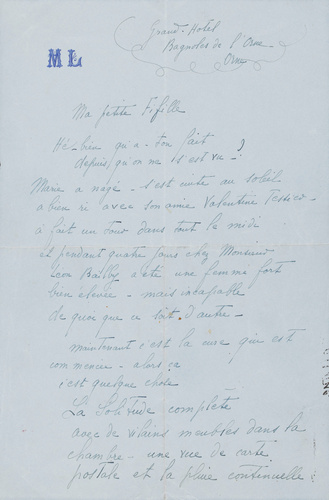 Grand-Hotel
Bagnoles de l'Orne
Orne
ML
Ma petite Fifille
Hé-bien qu'a-t-on fait
depuis qu'on ne s'est vu - ?
Marie a nagé - s'est cuite au soleil
a bien ri avec son amie Valentine Tessier -
a fait un tour dans tout le midi
et pendant quatre jours chez Monsieur
Léon Bailby a été une femme fort
bien élevée - mais incapable
de quoi que ce soit d'autre -
maintenant c'est la cure qui est
commencée - alors ça
c'est quelque chose
La Solitude complète
avec de vilains meubles dans la
chambre - une vue de carte
postale et la pluie continuelle